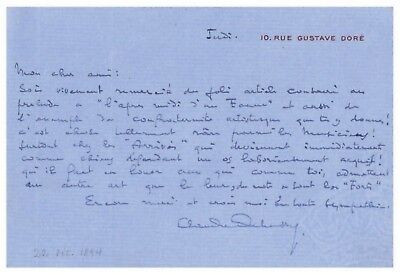 10, RUE GUSTAVE DORÉ
Jeudi.
Mon cher ami:
Sois vivement remercié du joli article consacré au
prélude à "l'après midi d'un Faune" et aussi de
l'exemple de confraternité artistique que tu y donnes!
c'est chose tellement rare parmi les musiciens!
surtout chez les "Arrivés" qui deviennent immédiatement
comme chiens défendant un os laborieusement acquis!
qu'il faut en louer ceux qui comme toi, admettent
un autre art que le leur, du reste ce sont les "Forts"
Encore merci et crois moi en toute sympathie.
Claude Debussy
22 DEC. 1894